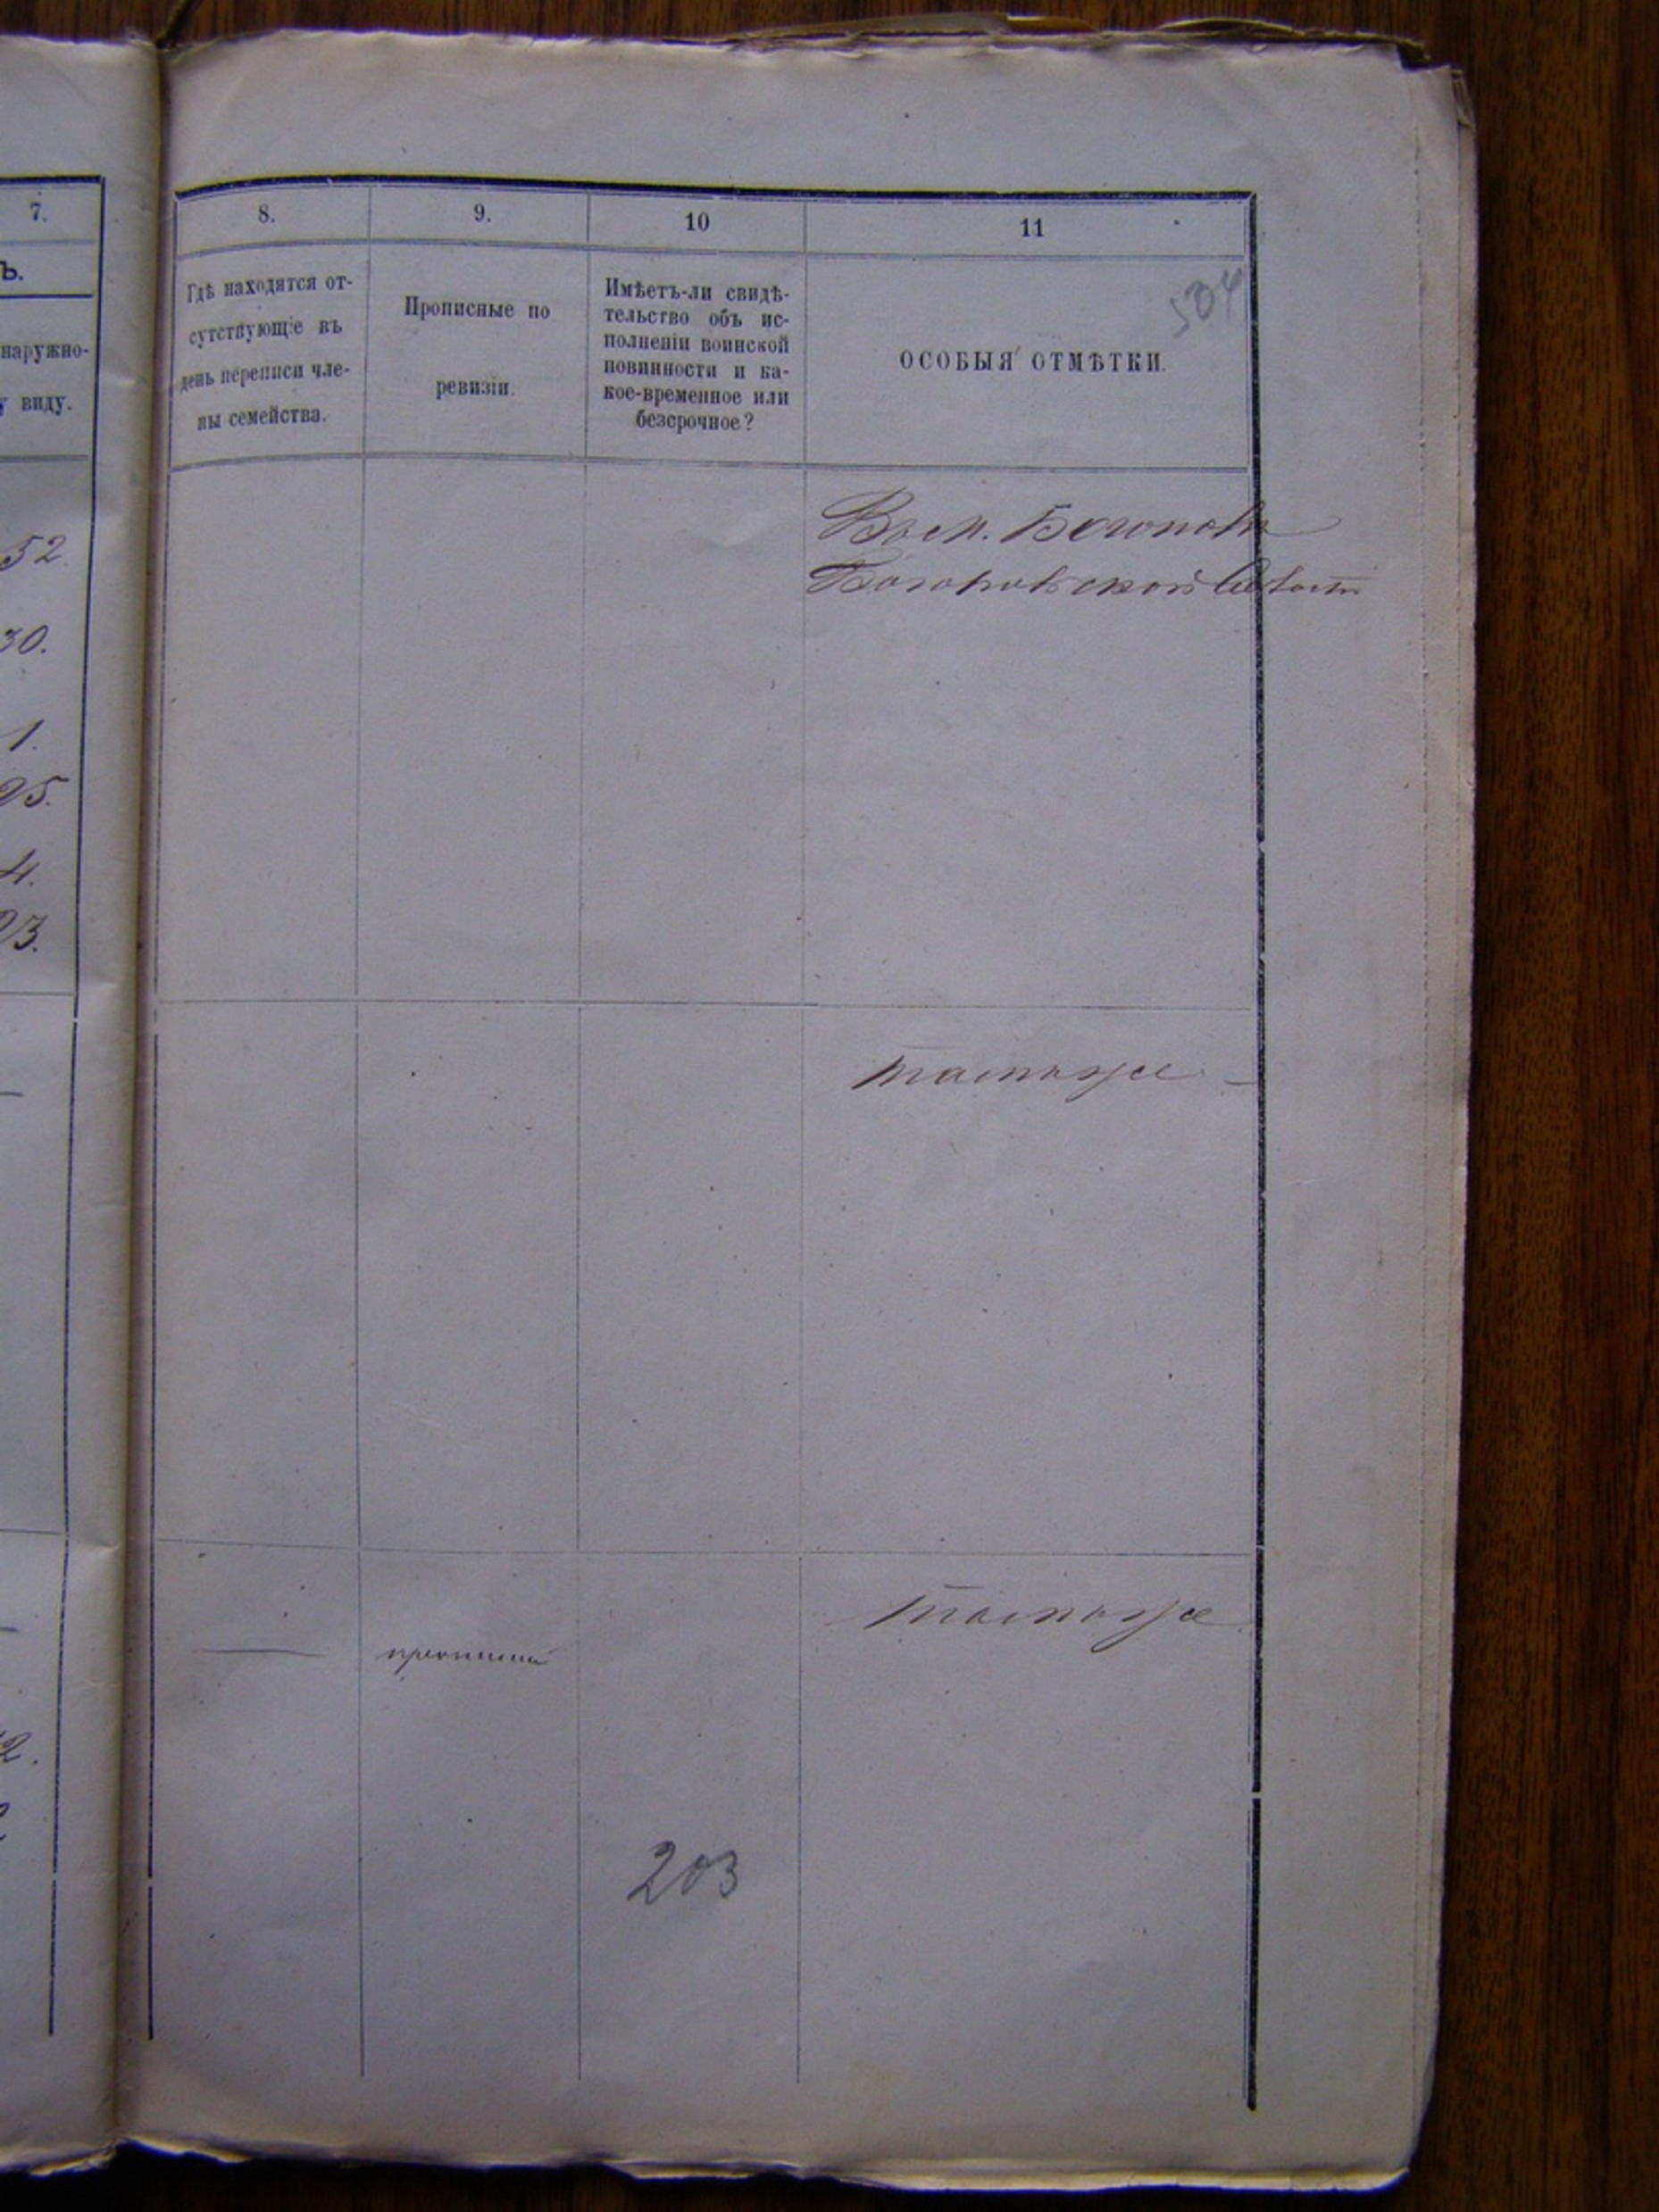 7.
ъ.
наружно-
у виду.
52
30.
1.
25.
4.
23.
2.
8.
9.
10
11
Гдѣ находятся от-
сутствующіе въ
день переписи чле-
ны семейства.
Прописные по
ревизіи.
Имѣетъ-ли свидѣ-
тельство объ ис-
полненіи воинской
повинности и ка-
кое-временное или
безсрочное?
504
ОСОБЫЯ ОТМѢТКИ.
Въ м.
тамъ же
тамъ же
203